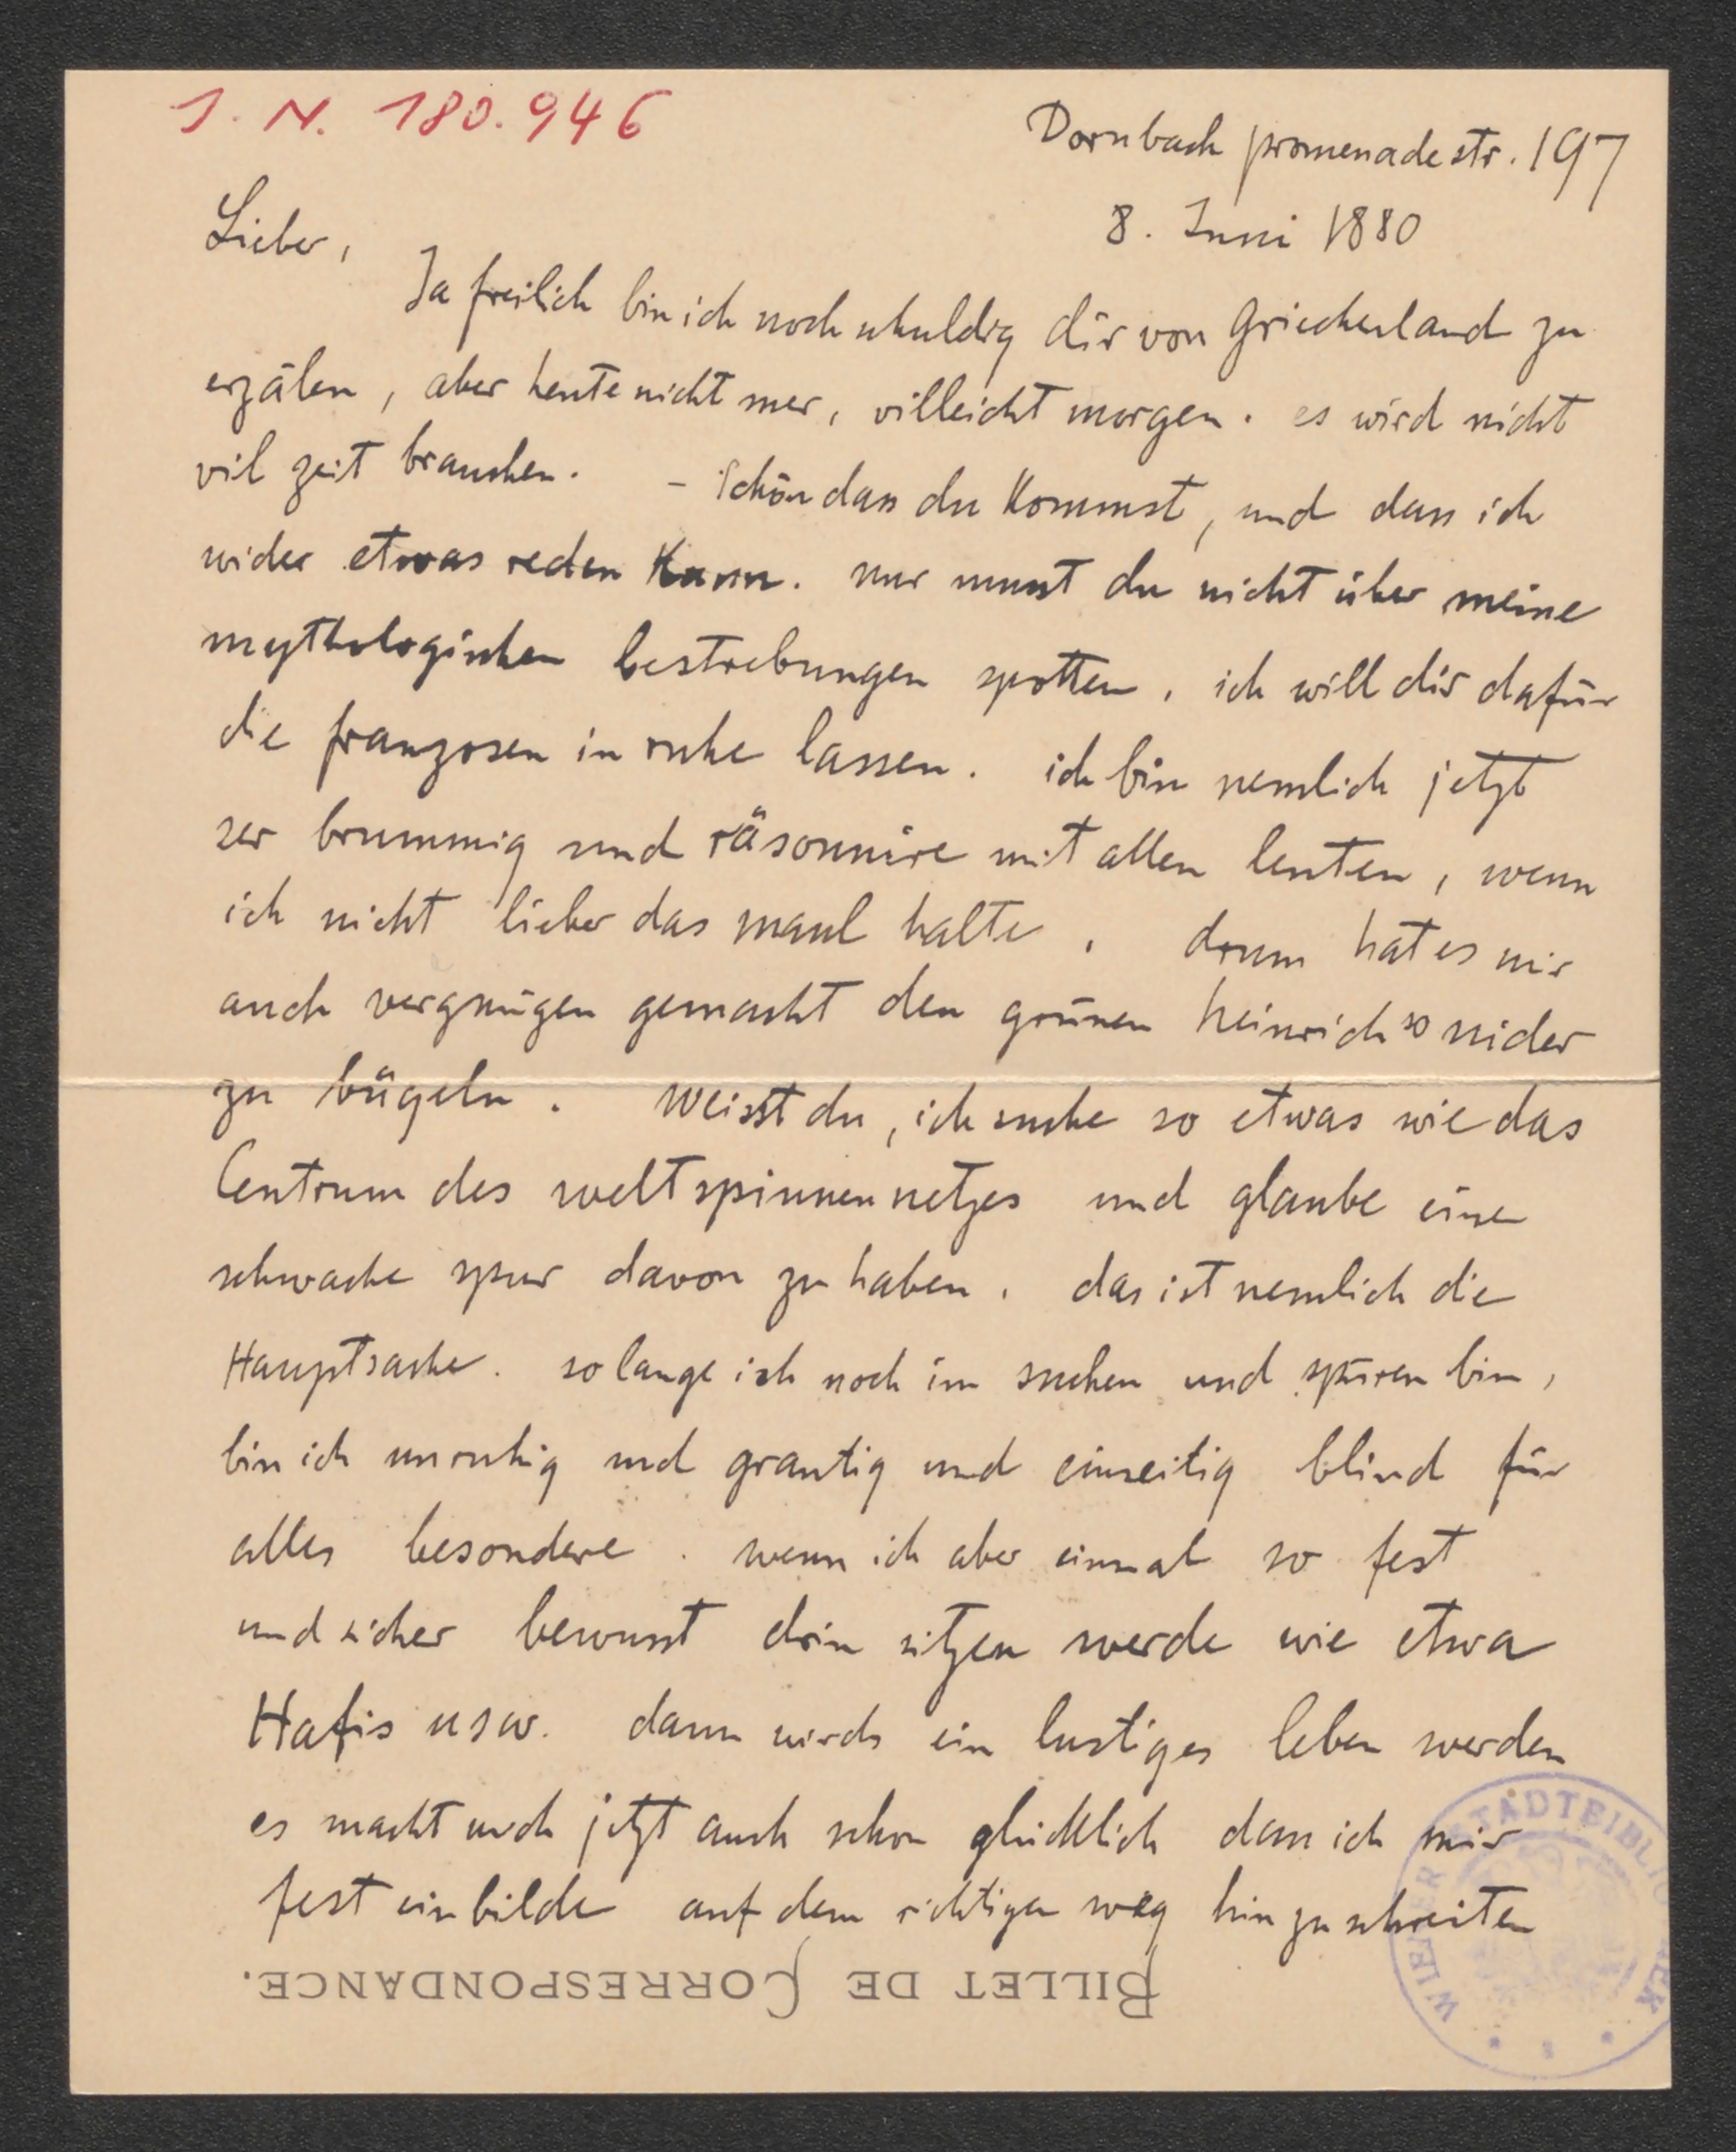 J. N. 180.946
Dornbach promenadestr. 197
8. Juni 1880
Lieber,
Ja freilich bin ich noch schuldig dir von Griechenland zu
erzälen, aber heute nicht mer, villeicht morgen. es wird nicht
vil zeit brauchen. – Schön dass du kommst, und dass ich
wider etwas reden kann. nur musst du nicht über meine
mythologischen bestrebungen spotten, ich will dir dafür
die franzosen in ruhe lassen. ich bin nemlich jetzt
ser brummig und räsonnire mit allen leuten, wenn
ich nicht lieber das maul halte. drum hat es mir
auch vergnügen gemacht den grünen heinrich so nider
zu bügeln. weisst du, ich suche so etwas wie das
Centrum des weltspinnennetzes und glaube eine
schwache spur davon zu haben. das ist nemlich die
Hauptsache. so lange ich noch im suchen und spüren bin,
bin ich unruhig und grantig und einseitig blind für
alles besondere. wenn ich aber einmal so fest
und sicher bewusst drin sitzen werde wie etwa
Hafis usw. dann wirds ein lustiges leben werden
es macht mich jetzt auch schon glücklich dass ich mir
fest einbilde auf dem richtigen weg hinzuschreiten
BILLET DE CORRESPONDANCE.
WIENER STADTBIBLIOTHEK